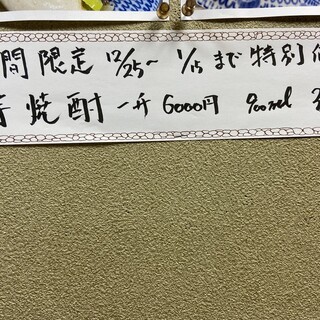 間限定 12/25～ 1/15まで特別
焼酎 一升 6000円 900ml